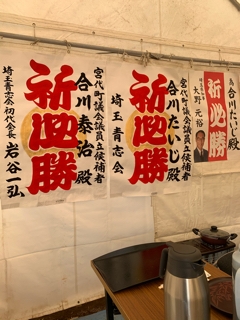 為
合川たいじ殿
祈必勝
大野元裕
宮代町議会議員立候補者
合川たいじ殿
祈必勝
埼玉青志会
宮代町議会議員立候補者
合川泰治殿
祈必勝
埼玉青志会初代会長
岩谷一弘